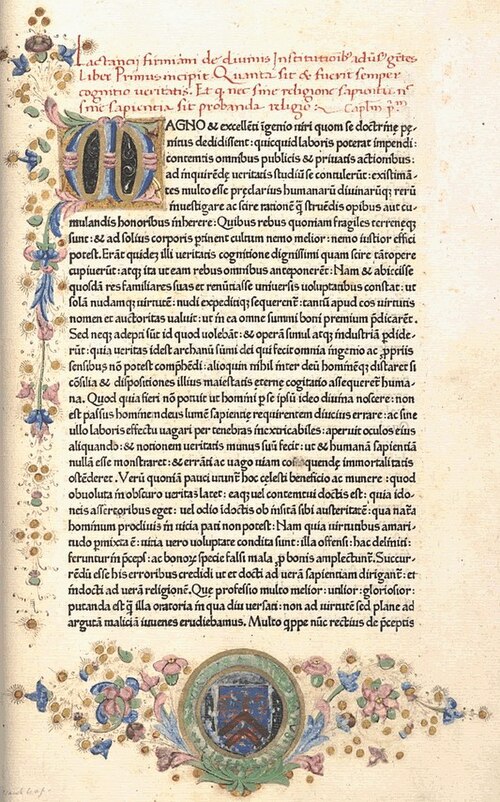 Lactancii firmiani de diuinis Institutioib⁹ adũs gẽtes
Liber Primus incipit Quanta sit & fuerit semper
cognitio ueritatis. Et q nec sine religione sapientia nec
sine sapientia sit probanda religio Caplm p.m
MAGNO & excellẽti ĩgenio uiri quom se doctrinę pę-
nitus dedidissent: quicquid laboris poterat impendi:
contemtis omnibus publicis & priuatis actionibus:
ad inquirẽdę ueritatis studiũ se contulerũt: existimã
tes multo esse pręclarius humanarũ diuinarũq; rerũ
inuestigare ac scire rationẽ q̃ struẽdis opibus aut cu-
mulandis honoribus inherere: Quibus rebus quoniam fragiles terreneq;
sunt: & ad solius corporis ptinent cultum nemo melior: nemo iustior effici
potest. Erãt quidẽ illi ueritatis cognitione dignissimi quam scire tãtopere
cupiuerũt: atq; ita ut eam rebus omnibus anteponerẽt: Nam & abiecisse
quosdã res familiares suas et renũtiasse uniuersis uoluptatibus constat: ut
solã nudamq; uirtutẽ: nudi expeditiq; sequerent̃: tantũ apud eos uirtutis
nomen et auctoritas ualuit: ut in ea omne summi boni premium p̃dicarẽt.
Sed neq; adepti sũt id quod uolebãt: & operã simul atq; industriã p̃dide-
rũt: quia ueritas idest archanũ sũmi dei qui fecit omnia ingenio ac ppriis
sensibus nõ potest comp̃hẽdi: alioquin nihil ĩnter deũ hominẽq; distaret si
cõsilia & dispositiones illius maiestatis eternę cogitatio assequeret̃ huma-
na. Quod quia fieri nõ potuit ut homini p se ipsũ ideo diuina nosceret: non
est passus hominẽ deus lumẽ sapientię requirentem diucius errare: ac sine
ullo laboris effectu uagari per tenebras inextricabiles: aperuit oculos eius
aliquando: & notionem ueritatis munus suũ fecit: ut & humanã sapientiã
nullã esse monstraret: & errãti ac uago uiam cõsequendę immortalitatis
ostẽderet. Verũ quoniã pauci utunt̃ hoc celesti beneficio ac munere: quod
obuoluta ĩn obscuro ueritas latet: eaq; uel contemtui doctis est: quia ido-
neis assertoribus eget: uel odio ĩdoctis ob insitã sibi austeritatẽ: quã nat̃a
hominum procliuis in uicia pati non potest: Nam quia uirtutibus amari-
tudo pmixta ẽ: uicia uero uoluptate condita sunt: illa offensi: hac deliniti:
feruntur in p̃ceps: ac bonoꝝ specie falsi mala p bonis amplectunt̃. Succur-
rẽdũ esse his erroribus credidi ut et docti ad uerã sapientiam dirigant̃: et
ĩndocti ad uerã religionẽ. Que professio multo melior: utilior: gloriosior:
putanda est q̃ illa oratoria in qua diu uersati: non ad uirtutẽ sed plane ad
argutã maliciã iuuenes erudiebamus. Multo qppe nũc rectius de p̃ceptis